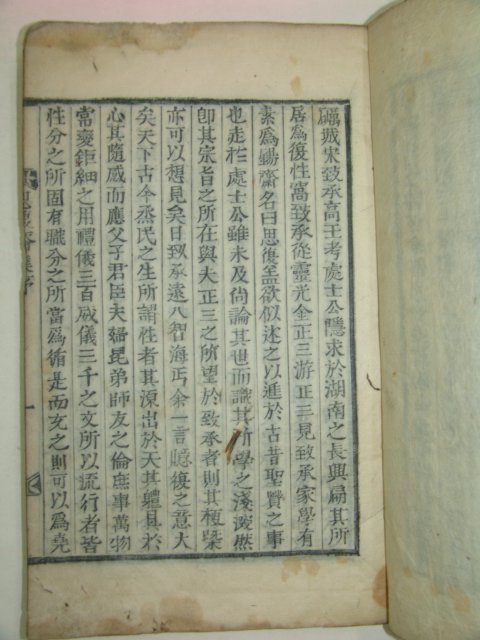 礪城宋致承高王考處士公隱求於湖南之長興扁其所
居為復性窩致承從靈光金正三游正三見致承家學有
素為錫齋名曰思復盖欲似述之以進於古昔聖賢之事
也走於處士公雖未及尙論其世而識其所學之淺深然
卽其宗旨之所在與夫正三之所望於致承者則其梗槩
亦可以想見矣日致承遠入智海丐余一言臆復之意大
矣天下古今烝民之生所謂性者其源出於天其軆具於
心其隨感而應父子君臣夫婦昆弟師友之倫庶事萬物
常變鉅細之用禮儀三百威儀三千之文所以流行者皆
性分之所固有職分之所當為循是而充之則可以為堯
集序 一